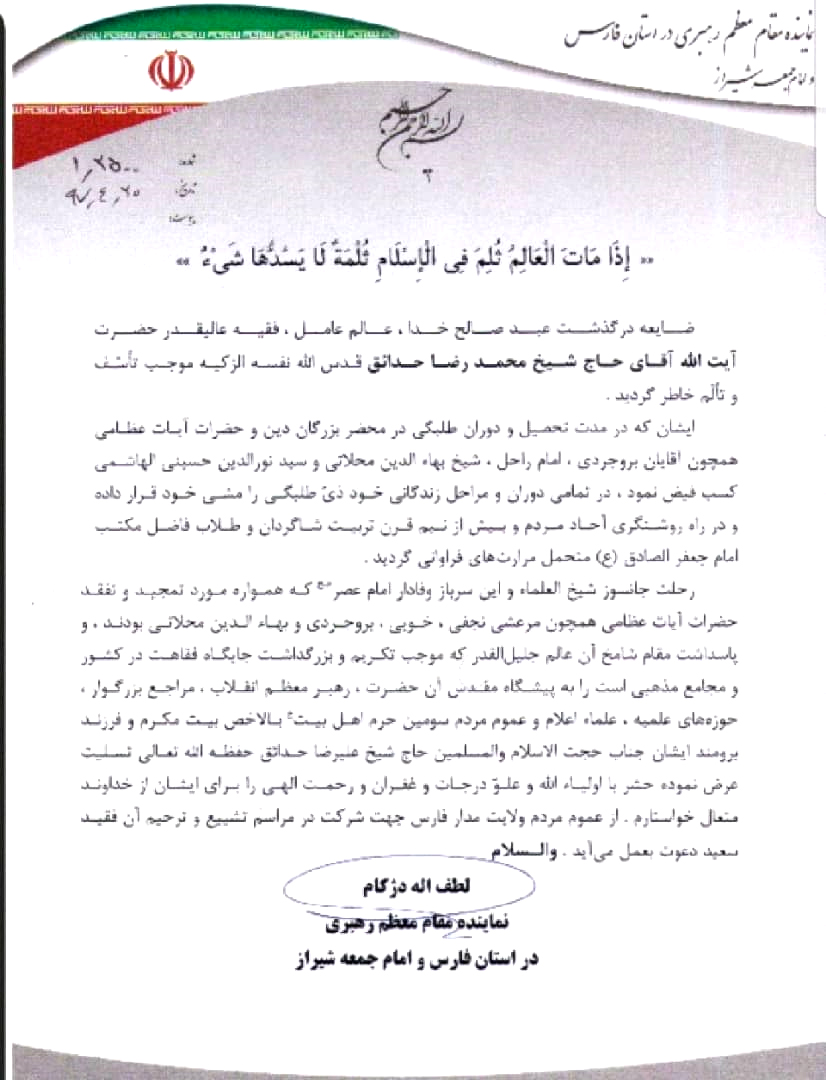 نماینده مقام معظم رهبری در استان فارس
و امام جمعه شیراز
بسم الله الرحمن الرحیم
شماره: ۱٫۲۵۰۰
تاریخ: ۹۷٫۴٫۲۰
پیوست:
« إِذَا مَاتَ الْعَالِمُ ثُلِمَ فِی الْإِسْلَامِ ثُلْمَةٌ لَا یَسُدُّهَا شَیْءٌ »
ضایعه درگذشت عبد صالح خدا ، عالم عامل ، فقیه عالیقدر حضرت
آیت الله آقای حاج شیخ محمد رضا حدائق قدس الله نفسه الزکیه موجب تأسّف
و تألّم خاطر گردید .
ایشان که در مدت تحصیل و دوران طلبگی در محضر بزرگان دین و حضرات آیات عظامی
همچون آقایان بروجردی ، امام راحل ، شیخ بهاء الدین محلاتی و سید نورالدین حسینی الهاشمی
کسب فیض نمود ، در تمامی دوران و مراحل زندگانی خود ذیّ طلبگی را مشی خود قرار داده
و در راه روشنگری آحاد مردم و بیش از نیم قرن تربیت شاگردان و طلاب فاضل مکتب
امام جعفر الصادق (ع) متحمل مرارت‌های فراوانی گردید .
رحلت جانسوز شیخ العلماء و این سرباز وفادار امام عصر عج که همواره مورد تمجید و تفقد
حضرات آیات عظامی همچون مرعشی نجفی ، خویی ، بروجردی و بهاء الدین محلاتی بودند ، و
پاسداشت مقام شامخ آن عالم جلیل‌القدر که موجب تکریم و بزرگداشت جایگاه فقاهت در کشور
و مجامع مذهبی است را به پیشگاه مقدس آن حضرت ، رهبر معظم انقلاب ، مراجع بزرگوار ،
حوزه‌های علمیه ، علماء اعلام و عموم مردم سومین حرم اهل بیت ع بالاخص بیت مکرم و فرزند
برومند ایشان جناب حجت الاسلام والمسلمین حاج شیخ علیرضا حدائق حفظه الله تعالی تسلیت
عرض نموده حشر با اولیاء الله و علوّ درجات و غفران و رحمت الهی را برای ایشان از خداوند
متعال خواستارم . از عموم مردم ولایت مدار فارس جهت شرکت در مراسم تشییع و ترحیم آن فقید
سعید دعوت بعمل می‌آید . والسلام
لطف اله دژکام
نماینده مقام معظم رهبری
در استان فارس و امام جمعه شیراز